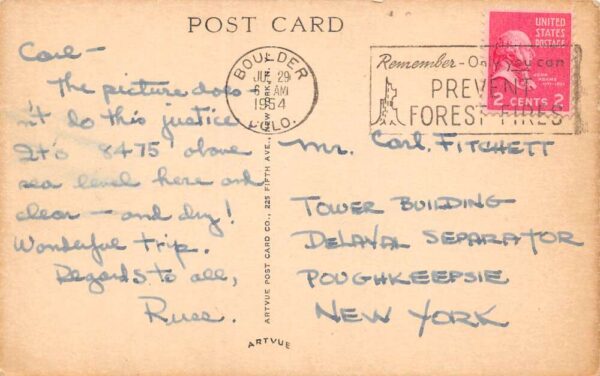 POST CARD
Carl -
The picture does-
n't do this justice
It's 8475 above
sea level here and
clear - and dry!
Wonderful trip.
Regards to all,
Russ.
BOULDER
JUL 29
AM
1954
COLO.
Remember - Only you can
PREVENT
FOREST FIRES
UNITED
STATES
POSTAGE
JOHN ADAMS
2 CENTS 2
Mr. Carl Fitchett
Tower Building
DeLaval Separator
Poughkeepsie
New York
ARTVUE POST CARD CO., 225 FIFTH AVE., NEW YORK, N.Y.
ARTVUE